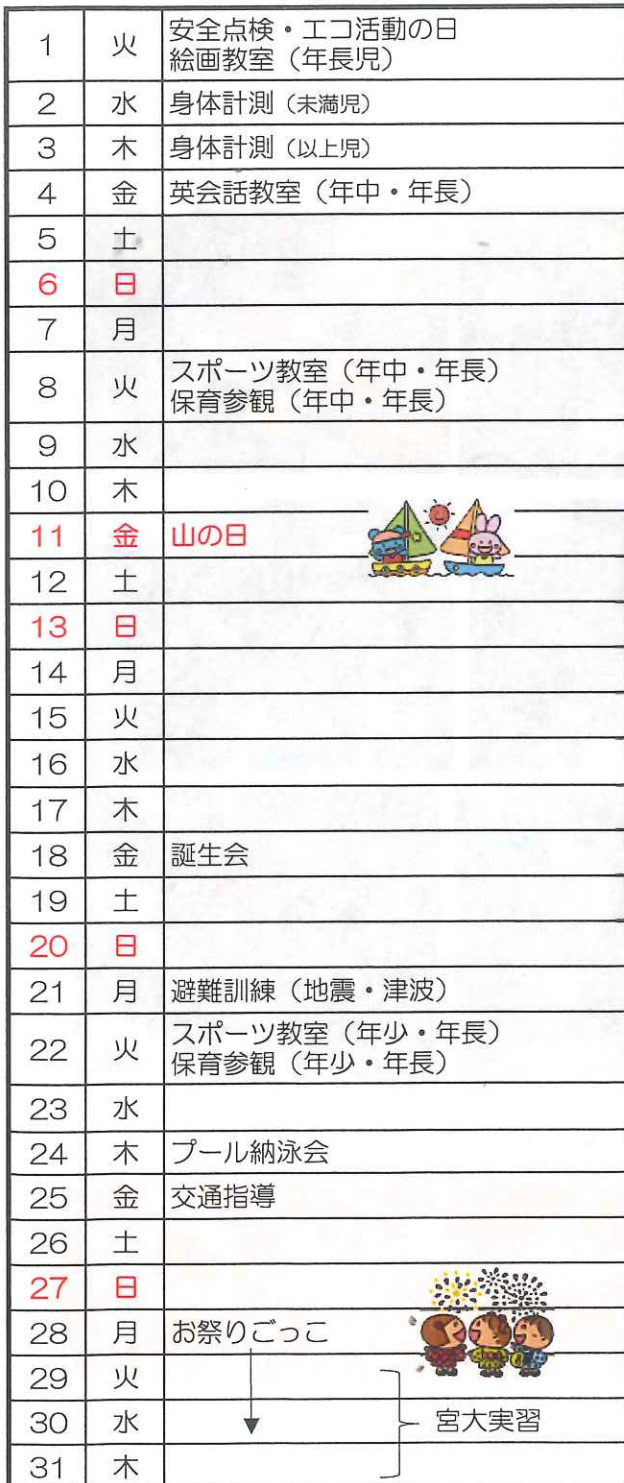 1 火 安全点検・エコ活動の日
絵画教室（年長児）
2 水 身体計測（未満児）
3 木 身体計測（以上児）
4 金 英会話教室（年中・年長）
5 土
6 日
7 月
8 火 スポーツ教室（年中・年長）
保育参観（年中・年長）
9 水
10 木
11 金 山の日
12 土
13 日
14 月
15 火
16 水
17 木
18 金 誕生会
19 土
20 日
21 月 避難訓練（地震・津波）
22 火 スポーツ教室（年少・年長）
保育参観（年少・年長）
23 水
24 木 プール納泳会
25 金 交通指導
26 土
27 日
28 月 お祭りごっこ
29 火
30 水 宮大実習
31 木